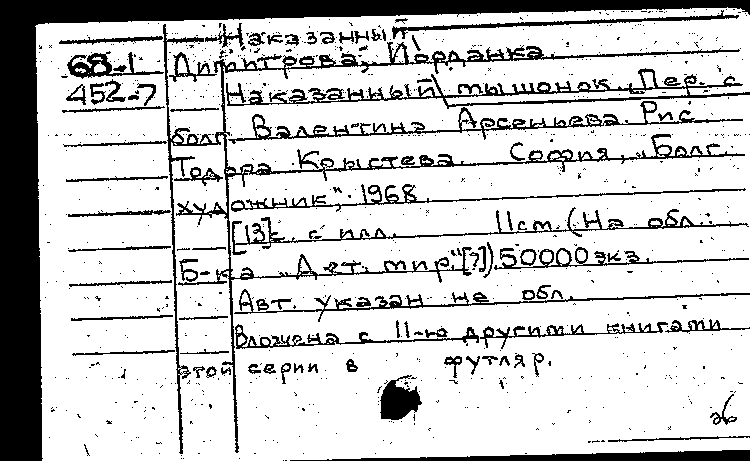 Наказанный
68-1 Димитрова, Йорданка.
452-7 Наказанный мышонок. Пер. с
болг. Валентина Арсеньева. Рис.
Тодора Крыстева. София, „Болг.
художник", 1968.
[13]с. с илл. 11см. (На обл.:
Б-ка „Дет. мир."[?]). 50000 экз.
Авт. указан на обл.
Вложена с 11-ю другими книгами
этой серии в футляр.